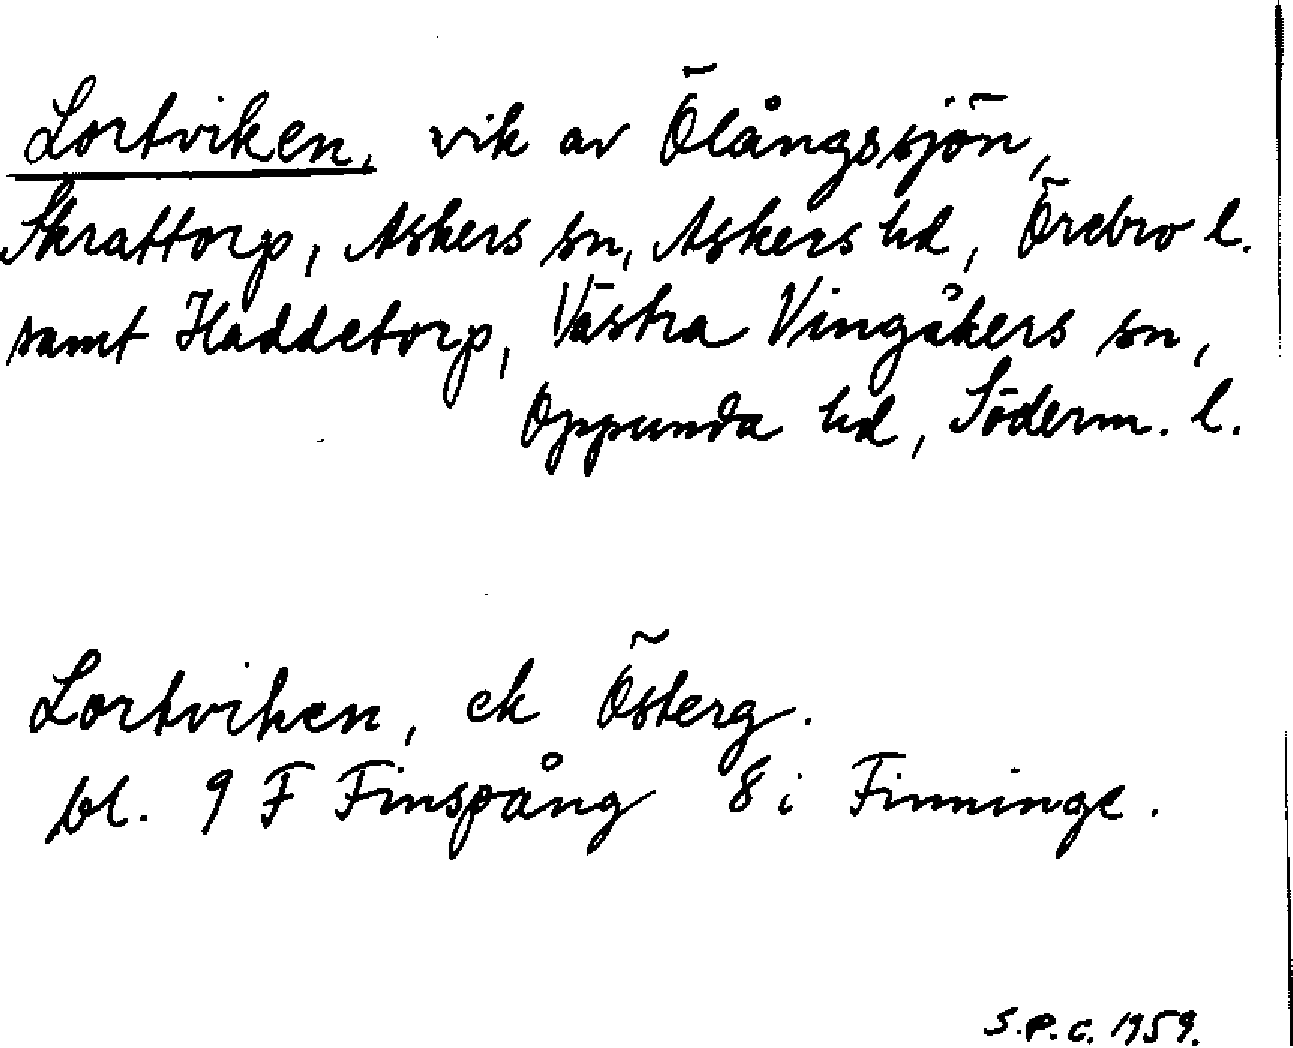 Lortviken, vik av Ölångssjön,
Skrattorp, Askers sn, Askers hd, Örebro l.
samt Haddetorp, Västra Vingåkers sn,
Oppunda hd, Söderm. l.
Lortviken, ek Österg.
bl. 9 F Finspång 8 i Finninge.
S.P.C. 1959.